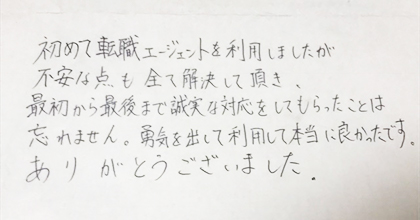 初めて転職エージェントを利用しましたが
不安な点も全て解決して頂き、
最初から最後まで誠実な対応をしてもらったことは
忘れません。勇気を出して利用して本当に良かったです。
ありがとうございました.